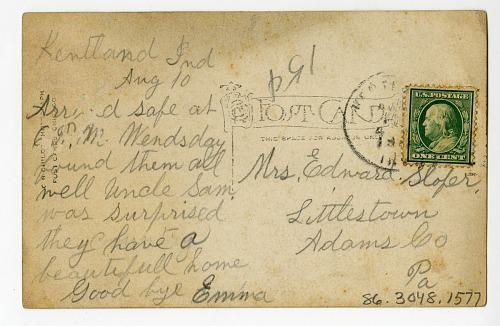 Kentland Ind
Aug 10
Arrived safe at
P. M. Wendsday
found them all
well Uncle Sam
was surprised
they have a
beautifull home
Good bye Emma
POST CARD
THIS SPACE FOR ADDRESS ONLY
U.S. POSTAGE
ONE CENT
Mrs. Edward Slofer
Littlestown
Adams Co
Pa
86.3048.1577